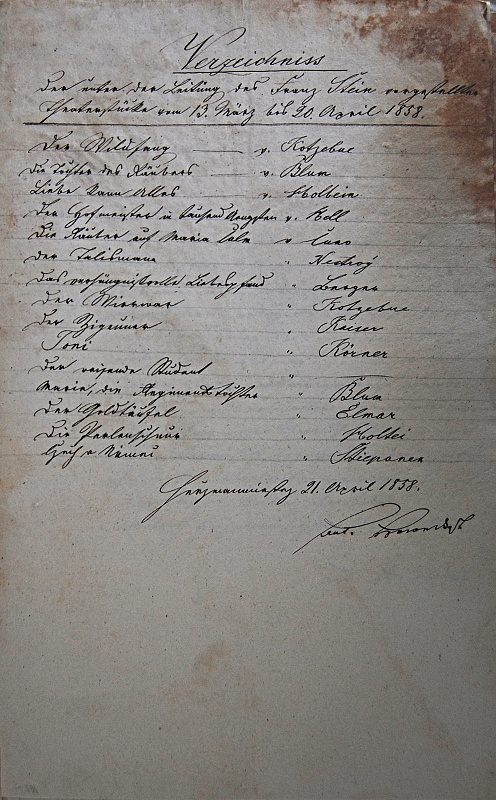 Verzeichniss
der unter der Leitung des Franz Stein vorgestellten
Theaterstücke vom 13. März bis 20. April 1858.
Der Wildfang — v. Kotzebue
Die Töchter des Räubers — v. Blum
Liebe kann Alles v. Holbein
Der Hofmeister in tausend Aengsten v. Hell
Die Räuber auf Maria Culm v Cuno
Der Talismann " Nestroy
Das verhängnißvolle Liebespfand " Berger
Der Wirrwar " Kotzebue
Der Zigeuner " Kaiser
Toni " Körner
Der reisende Student " —
Marie, die Regimentstochter " Blum
Der Goldteufel " Elmar
Die Perlenschnur " Holtei
" Stiepanek
Hermannmiestec 21. April 1858.
Ant.